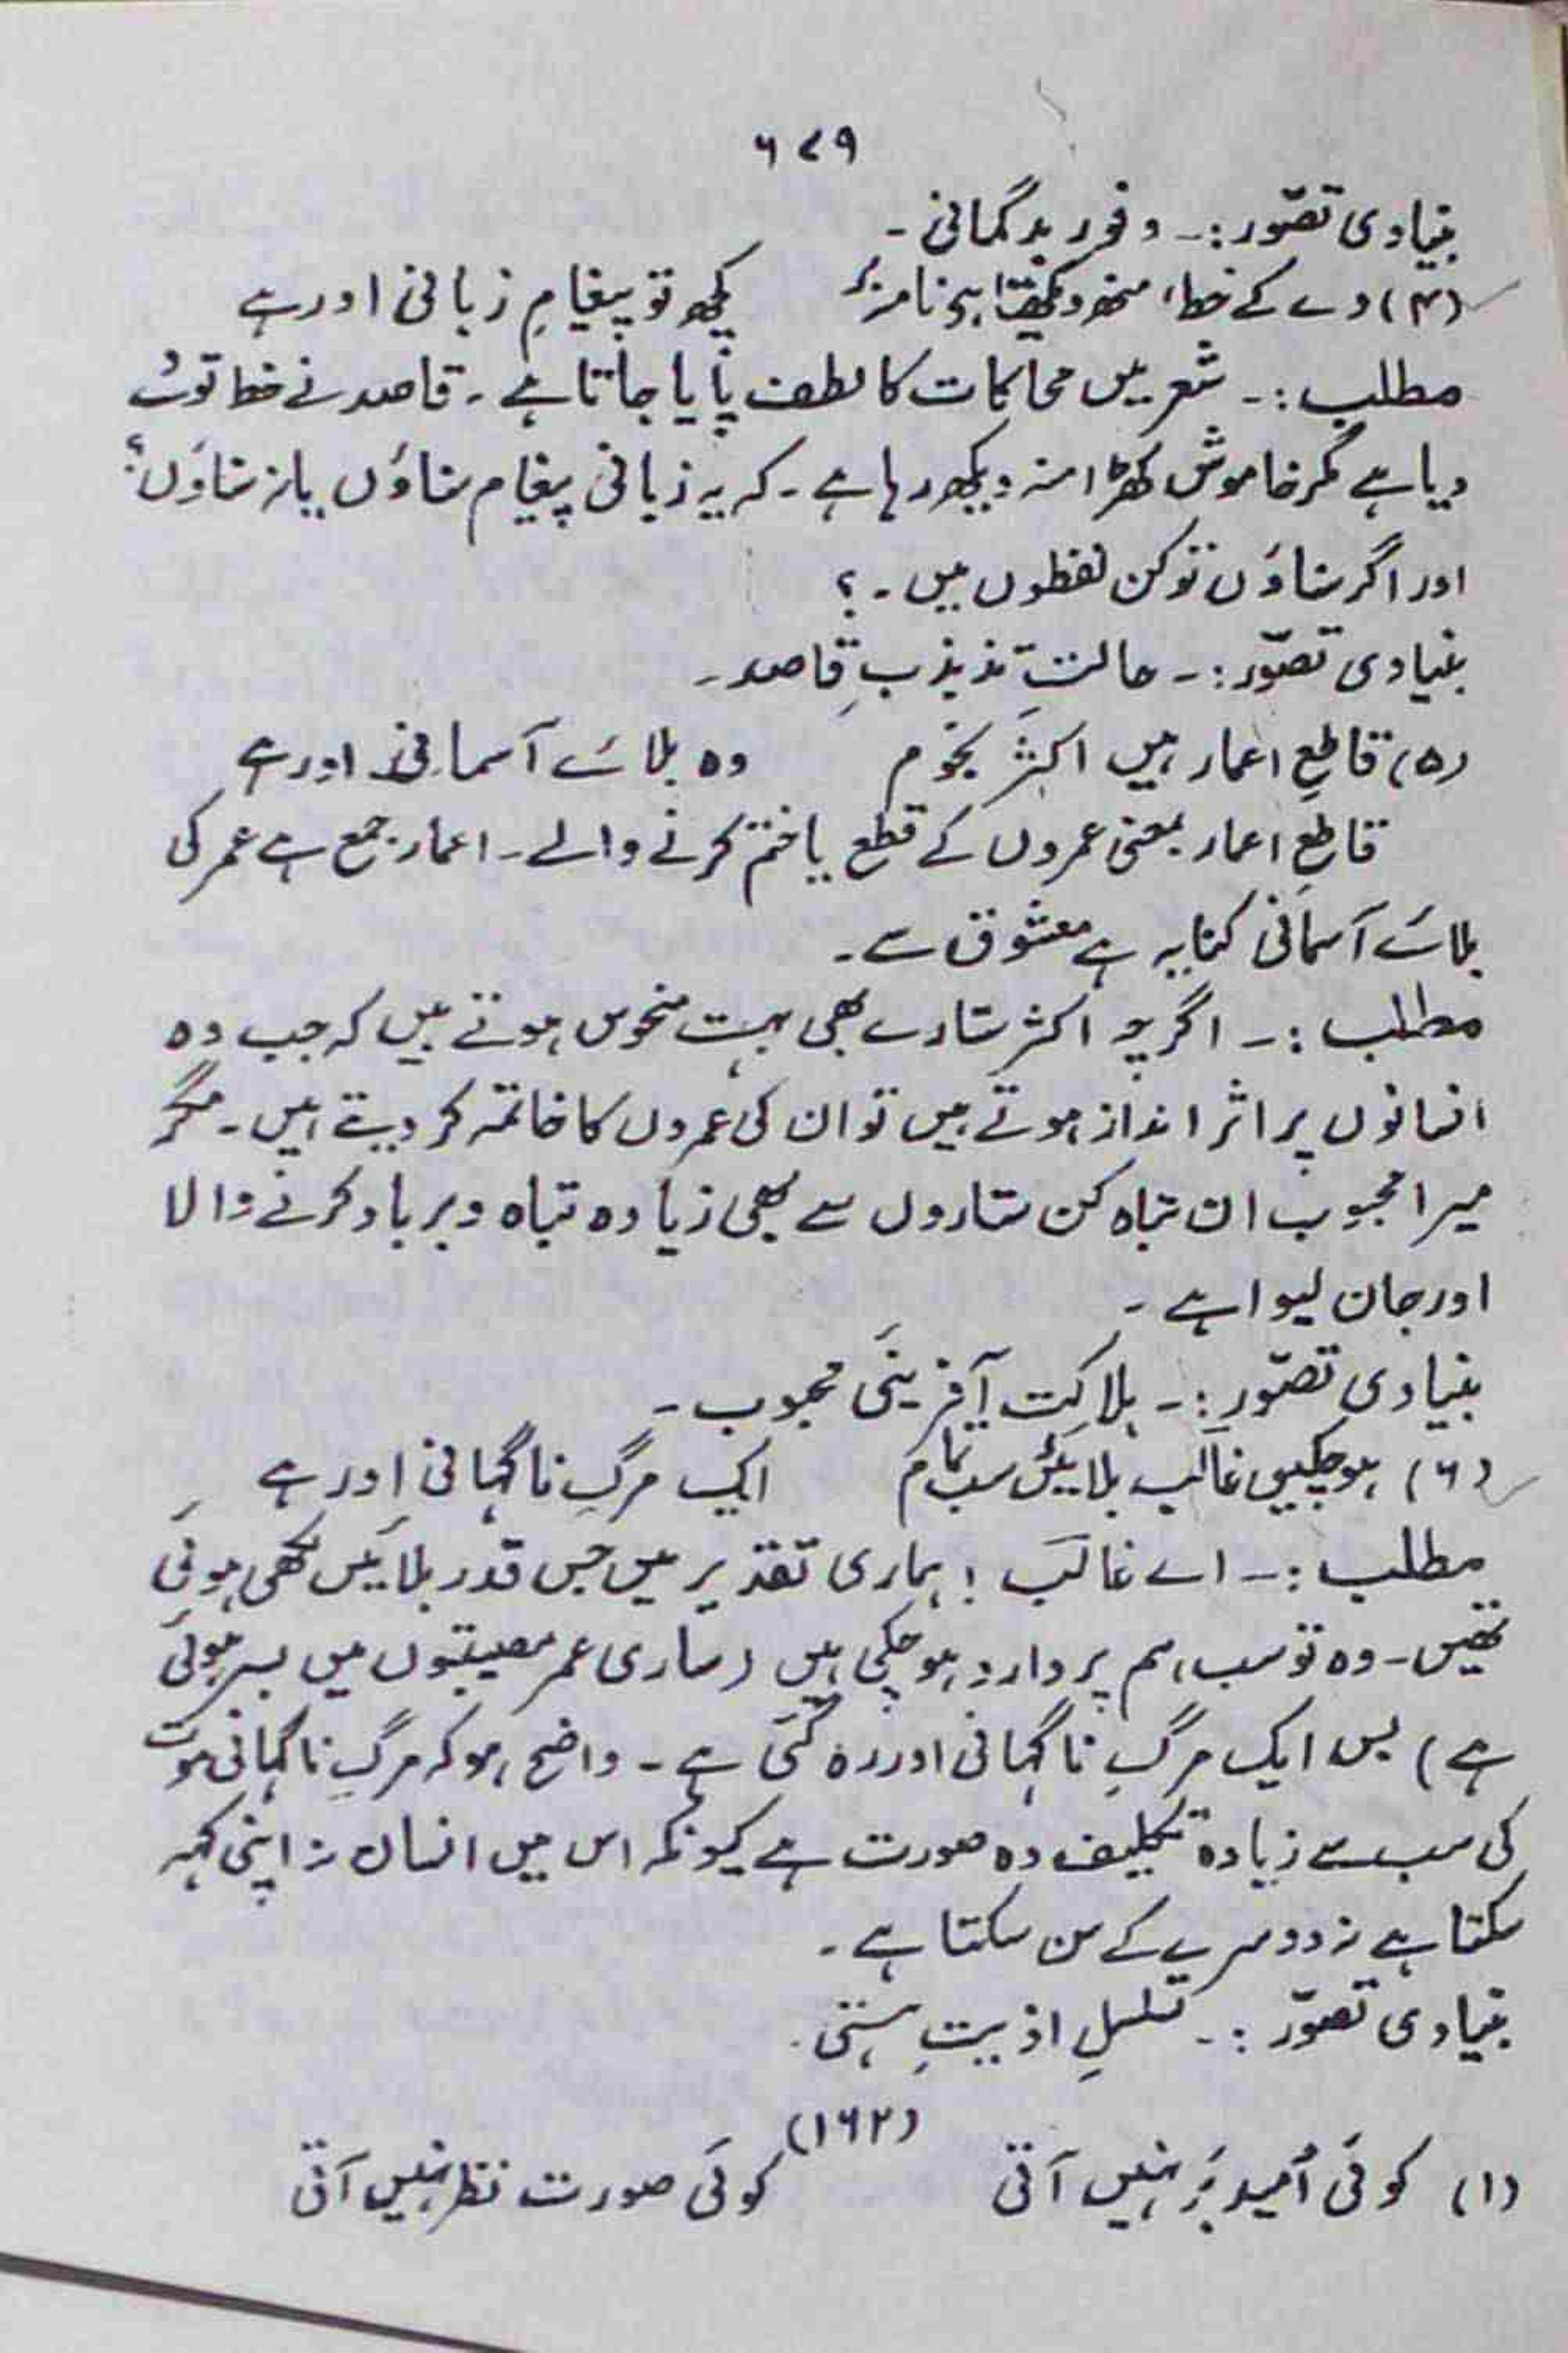 ۶۷۹
بنیادی تصوّر :۔ وفورِ بدگمانی ۔
(۴) دے کے خط، منھ دیکھتا ہے نامہ بر کچھ تو پیغامِ زبانی اور ہے
مطلب :۔ شعر میں محاکات کا لطف پایا جاتا ہے ۔ قاصد نے خط تو دے
دیا ہے مگر خاموش کھڑا منہ دیکھ رہا ہے ۔ کہ یہ زبانی پیغام سناؤں یا نہ سناؤں ؟
اور اگر سناؤں تو کن لفظوں میں ۔ ؟
بنیادی تصوّر :۔ حالتِ تذبذبِ قاصد ۔
(۵) قاطعِ اعمار ہیں اکثر نجوم وہ بلائے آسمانی اور ہے
قاطعِ اعمار بمعنی عمروں کے قطع یا ختم کرنے والے ۔ اعمار جمع ہے عمر کی
بلائے آسمانی کنایہ ہے معشوق سے ۔
مطلب :۔ اگرچہ اکثر ستارے بھی بہت منحوس ہوتے ہیں کہ جب وہ
انسانوں پر اثر انداز ہوتے ہیں تو ان کی عمروں کا خاتمہ کر دیتے ہیں ۔ مگر
میرا محبوب ان تباہ کن ستاروں سے بھی زیادہ تباہ و برباد کرنے والا
اور جان لیوا ہے ۔
بنیادی تصوّر :۔ ہلاکت آفرینئ محبوب ۔
(۶) ہو چکیں غالب بلائیں سب تمام ایک مرگِ ناگہانی اور ہے
مطلب :۔ اے غالب ! ہماری تقدیر میں جس قدر بلائیں لکھی ہوئی
تھیں ۔ وہ تو سب ہم پر وارد ہو چکی ہیں (ساری عمر مصیبتوں میں بسر ہوئی
ہے) بس ایک مرگِ ناگہانی اور رہ گئی ہے ۔ واضح ہو کہ مرگِ ناگہانی موت
کی سب سے زیادہ تکلیف دہ صورت ہے کیونکہ اس میں انسان نہ اپنی کہہ
سکتا ہے نہ دوسرے کے سن سکتا ہے ۔
بنیادی تصوّر :۔ تسلسلِ اذیتِ ہستی ۔
(۱۶۲)
(۱) کوئی اُمید بَر نہیں آتی کوئی صورت نظر نہیں آتی